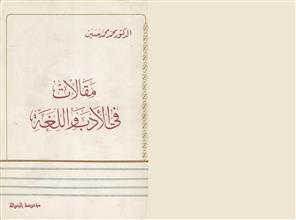 الدكتور محمد محمد حسين
مقالات
في الأدب واللغة
مؤسسة الرسالة